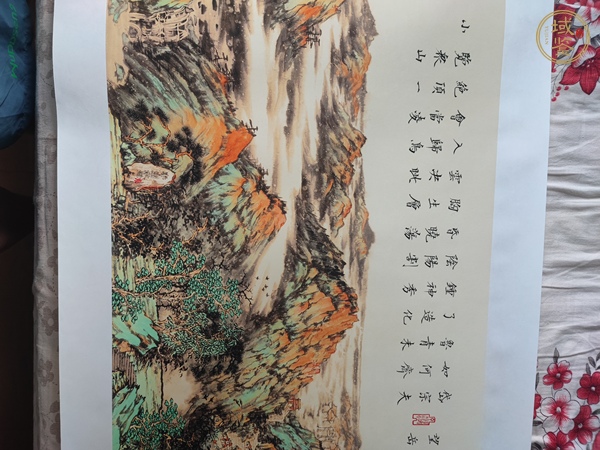 望岳
岱宗夫
如何齊
魯青未
了造化
鍾神秀
陰陽割
昏曉蕩
胸生層
雲決眥
入歸鳥
會當凌
絕頂一
覽眾山
小